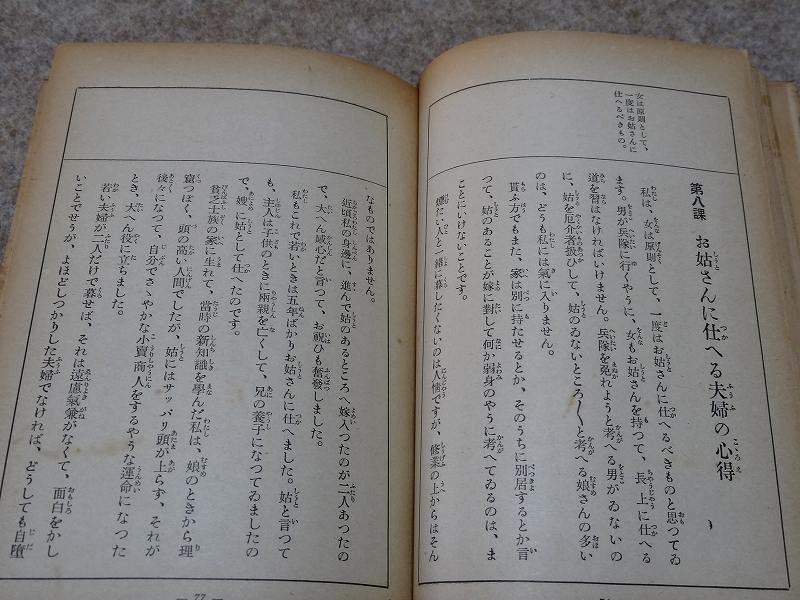 女は原則として、
一度はお姑さんに
仕へるべきもの。
第八課　お姑さんに仕へる夫婦の心得
私は、女は原則として、一度はお姑さんに仕へるべきものと思つてゐ
ます。男が兵隊に行くやうに、女もお姑さんを持つて、長上に仕へる
道を習はなければいけません。兵隊を免れようと考へる男がゐないの
に、姑を厄介者扱ひして、姑のゐないところ〳〵と考へる娘さんの多い
のは、どうも私には氣に入りません。
貰ふ方でもまた、家は別に持たせるとか、そのうちに別居するとか言
つて、姑のあることが嫁に對して何か弱身のやうに考へてゐるのは、ま
ことにいけないことです。
嫌たい人と一緒に暮したくないのは人情ですが、修業の上からはそん
なものではありません。
近頃私の身邊に、進んで姑のあるところへ嫁入つたのが二人あつたの
で、大へん感心だと言つて、お祝ひも奮發しました。
私もこれで若いときは五年ばかりお姑さんに仕へました。姑と言つて
も、主人は子供のときに兩親を亡くして、兄の養子になつてゐましたの
で、嫂に姑として仕へたのです。
貧乏士族の家に生れて、當時の新知識を學んだ私は、娘のときから理
窟つぽく、頭の高い人間でしたが、姑にはサッパリ頭が上らず、それが
後々になつて、自分でさゝやかな小賣商人をするやうな運命になつた
とき、大へん役に立ちました。
若い夫婦が二人だけで暮せば、それは遠慮氣兼がなくて、面白をかし
いことでせうが、よほどしつかりした夫婦でなければ、どうしても自墮
— 77 —